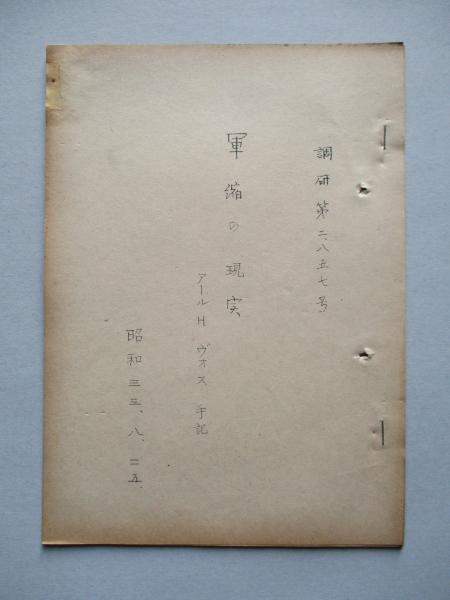 調研第二八五七号
軍縮の現実
アールHヴォス手記
昭和三三、八、二五、